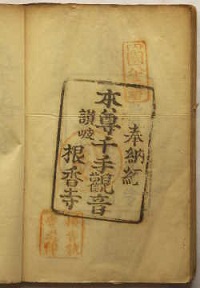 奉納経
本尊千手觀音
讃岐
根香寺